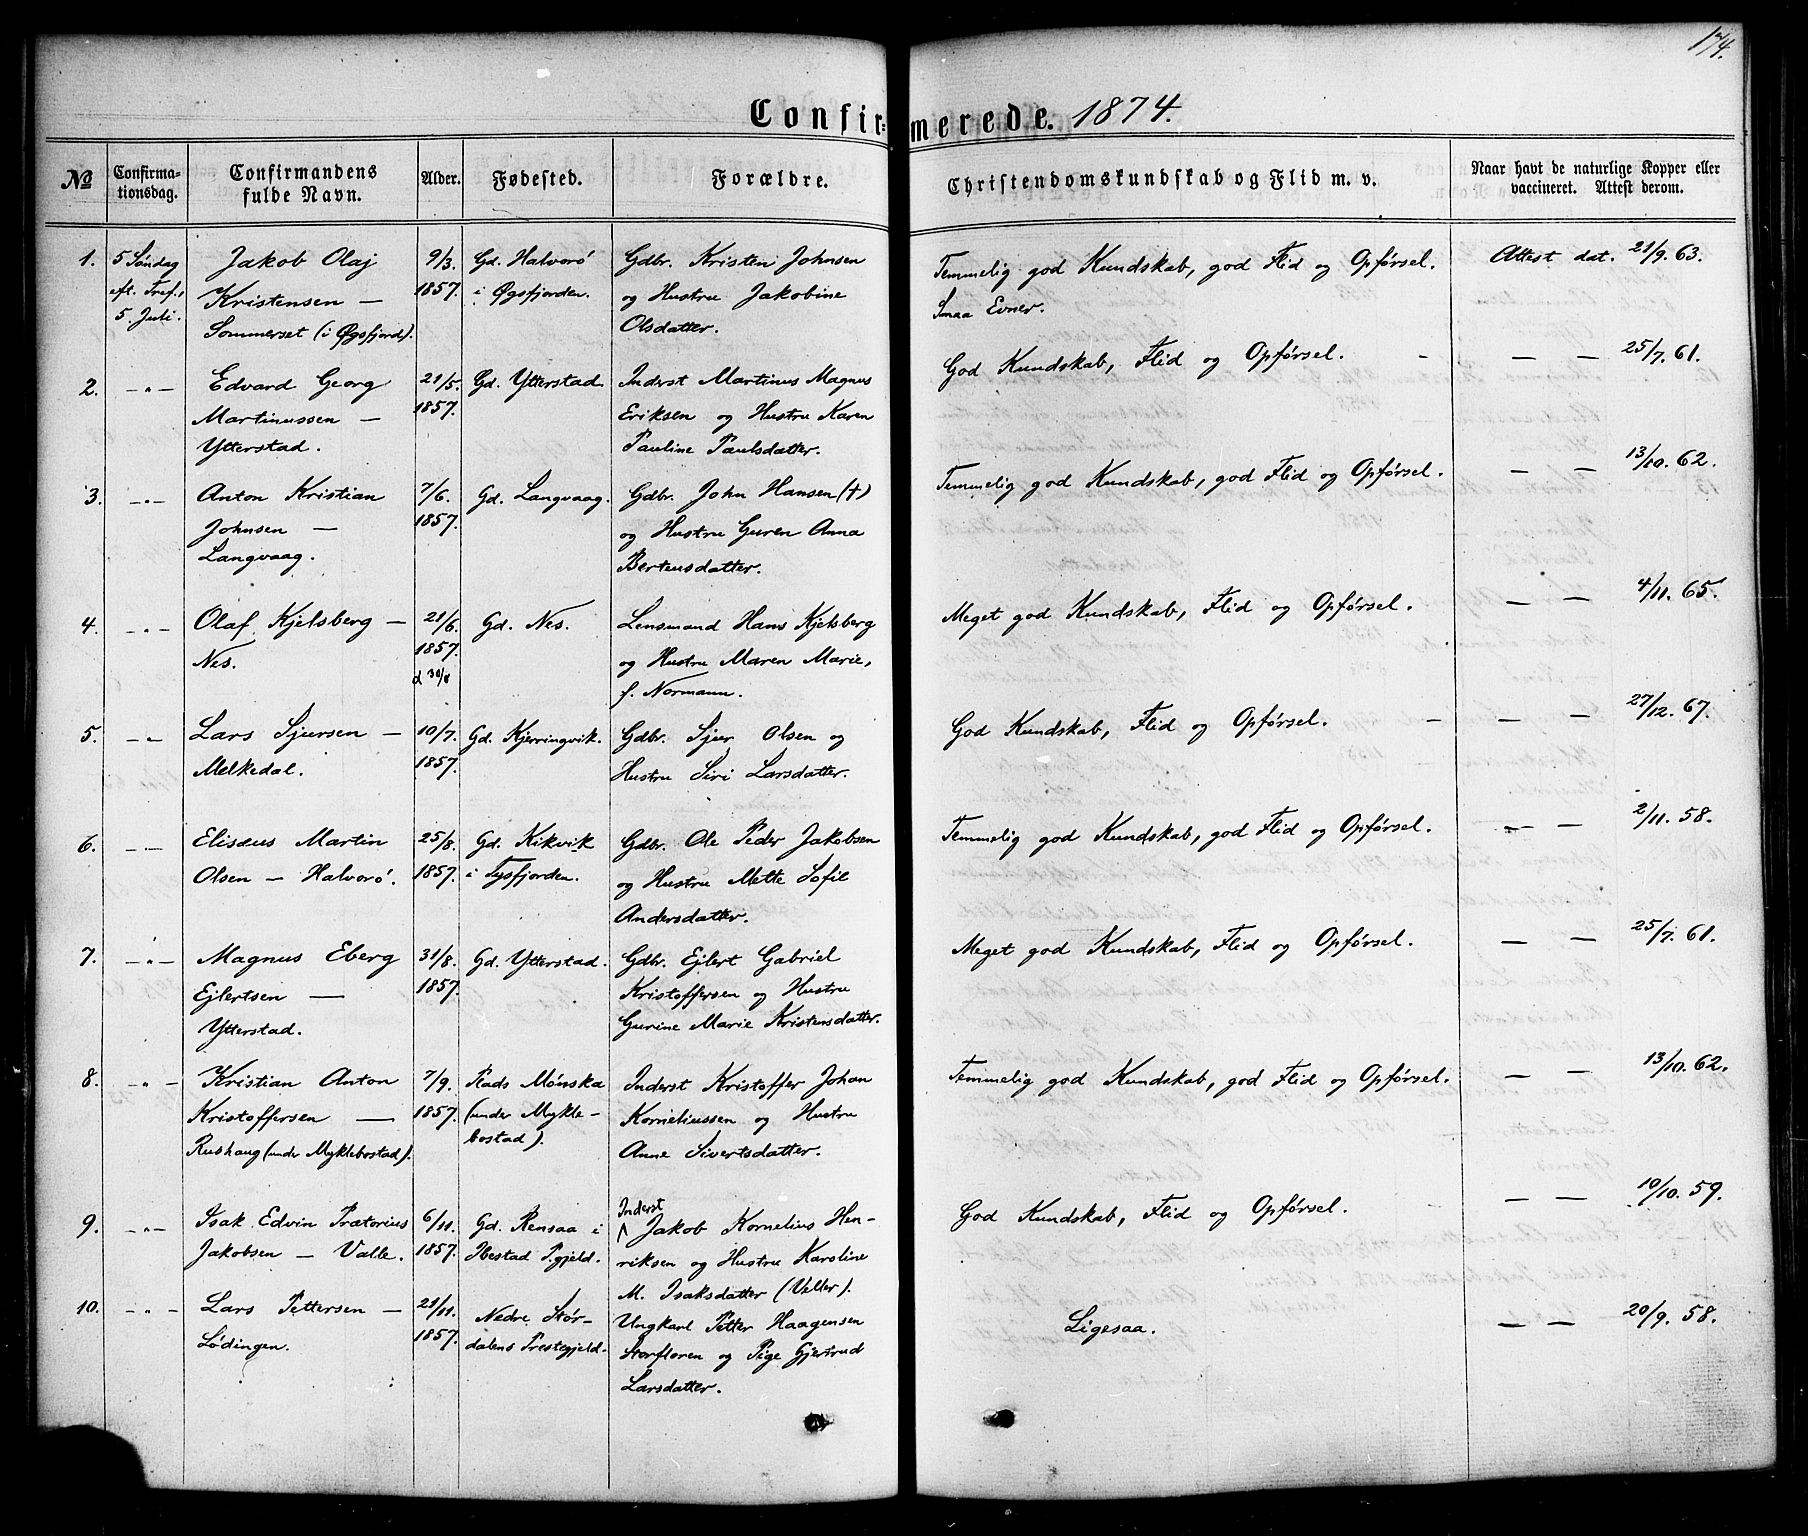 174.
Confirmerede. 1874.
No
Confirmationsdag.
Confirmandens fulde Navn.
Alder.
Fødested.
Forældre.
Christendomskundskab og Flid m. v.
Naar havt de naturlige Kopper eller vaccineret. Attest derom.
1. 5 Søndag Jakob Olaj 9/3. Gd. Halvorö Gdbr. Kristen Johnsen Temmelig god Kundskab, god Flid og Opførsel. Attest dat. 21/9. 63.
eft. Tref., Kristensen — 1857. i Øgsfjorden. og Hustru Jakobine Smaa Evner.
5. Juli. Sommerset (i Øgsfjord). Olsdatter.
2. —„— Edvard Georg 21/5. Gd. Ytterstad. Inderst Martinus Magnus God Kundskab, Flid og Opførsel. — — — 25/7. 61.
Martinussen — 1857. Eriksen og Hustru Karen
Ytterstad. Pauline Paulsdatter.
3. —„— Anton Kristian 7/6. Gd. Langvaag. Gdbr. John Hansen (†) Temmelig god Kundskab, god Flid og Opførsel. — — 13/10. 62.
Johnsen — 1857. og Hustru Guren Anna
Langvaag. Berteusdatter.
4. —„— Olaf Kjelsberg — 21/6. Gd. Nes. Lensmand Hans Kjelsberg Meget god Kundskab, Flid og Opførsel. — — 4/11. 65.
Nes. 1857. og Hustru Maren Marie,
d 30/8 f. Normann.
5. —„— Lars Sjursen — 10/7. Gd. Kjerringvik. Gdbr. Sjur Olsen og God Kundskab, Flid og Opførsel. — — — 27/12. 67.
Melkedal. 1857. Hustru Siri Larsdatter.
6. —„— Elisæus Martin 25/8. Gd. Kikvik Gdbr. Ole Peder Jakobsen Temmelig god Kundskab, god Flid og Opførsel. — — 2/11. 58.
Olsen — Halvorö. 1857. i Tysfjorden. og Hustru Mette Sofie
Andersdatter.
7. —„— Magnus Eberg 31/8. Gd. Ytterstad. Gdbr. Ejlert Gabriel Meget god Kundskab, Flid og Opførsel. — — 25/7. 61.
Ejlertsen — 1857. Kristoffersen og Hustru
Ytterstad. Gurine Marie Kristensdatter.
8. —„— Kristian Anton 7/9. Plads Mönska Inderst Kristoffer Johan Temmelig god Kundskab, god Flid og Opførsel. — — 13/10. 62.
Kristoffersen — 1857. (under Mykle- Korneliussen og Hustru
Rushaug (under Myklebostad). bostad). Anne Sivertsdatter.
9. —„— Isak Edvin Prætorius 6/11. Gd. Rensaa i Inderst Jakob Kornelius Hen- God Kundskab, Flid og Opførsel. — — 10/10. 59.
Jakobsen — Valle. 1857. Ibestad P.gjeld. riksen og Hustru Karoline
M. Isaksdatter (Veller).
10. —„— Lars Pettersen — 21/11. Nedre Stör- Ungkarl Petter Haagensen Ligesaa. — — 20/9. 58.
Lödingen. 1857. dalens Prestegjeld. Storfloren og Pige Gjertrud
Larsdatter.